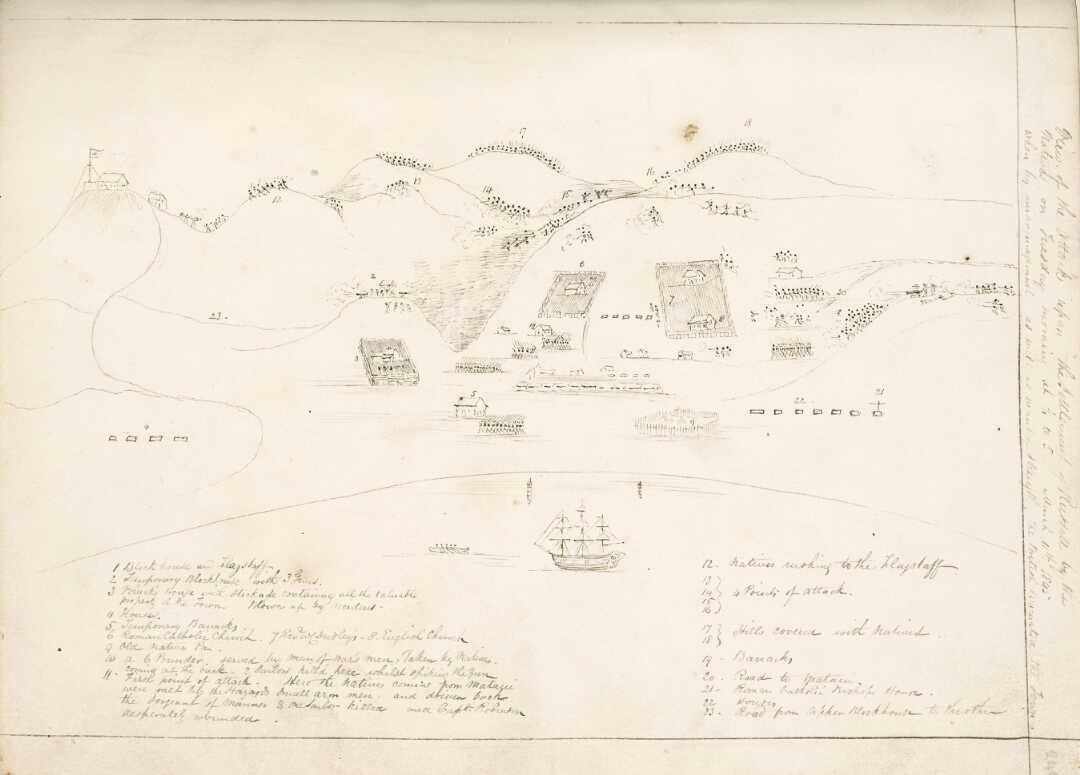 View of the Attack upon the Settlement of Russell by the
Natives on Tuesday morning at ¼ to 5 March 11th 1845
when by mismanagement as well as
17
18
13
14
15
16
12
2
6
7
8
10
20
23
3
9
5
22
21
4
1 Block house and Flagstaff
2 Temporary Blockhouse with 3 Guns.
3 House with Stockade containing all the valuable
property in the Town. Blown up by accident.
4 Houses.
5 Temporary Barracks
6 Roman Catholic Church. 7 Revd Mr Dudley's 8 English Church
9 Old Native Pa.
10 A 6 Pounder, served by men of war's men, Taken by Natives
coming at the back. 2 Sailors killed here whilst spiking the Gun
11 First point of attack. Here the natives coming from Matagu
were met by the Hazard's Small arm men, and driven back
the Sergeant of Marines & one Sailor killed and Capt. Robertson
desperately wounded.
12 - Natives rushing to the Flagstaff
13 }
14 } 4 Points of Attack.
15 }
16 }
17 } Hills covered with Natives.
18 }
19 - Barracks
20 - Road to
21 - Roman Catholic Bishop's House.
22 Houses
23 - Road from Upper Blockhouse to the other